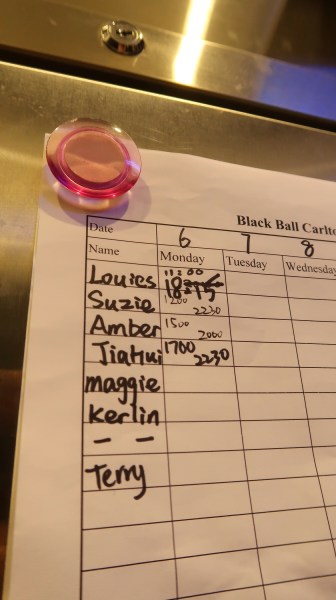 Black Ball Carlt
Date 6 7 8
Name Monday Tuesday Wednesday
Louies 11:00
18:15
Suzie 1200
2230
Amber 1500
2000
JiaHui 1700
2230
maggie
Kerlin
— —
Terry